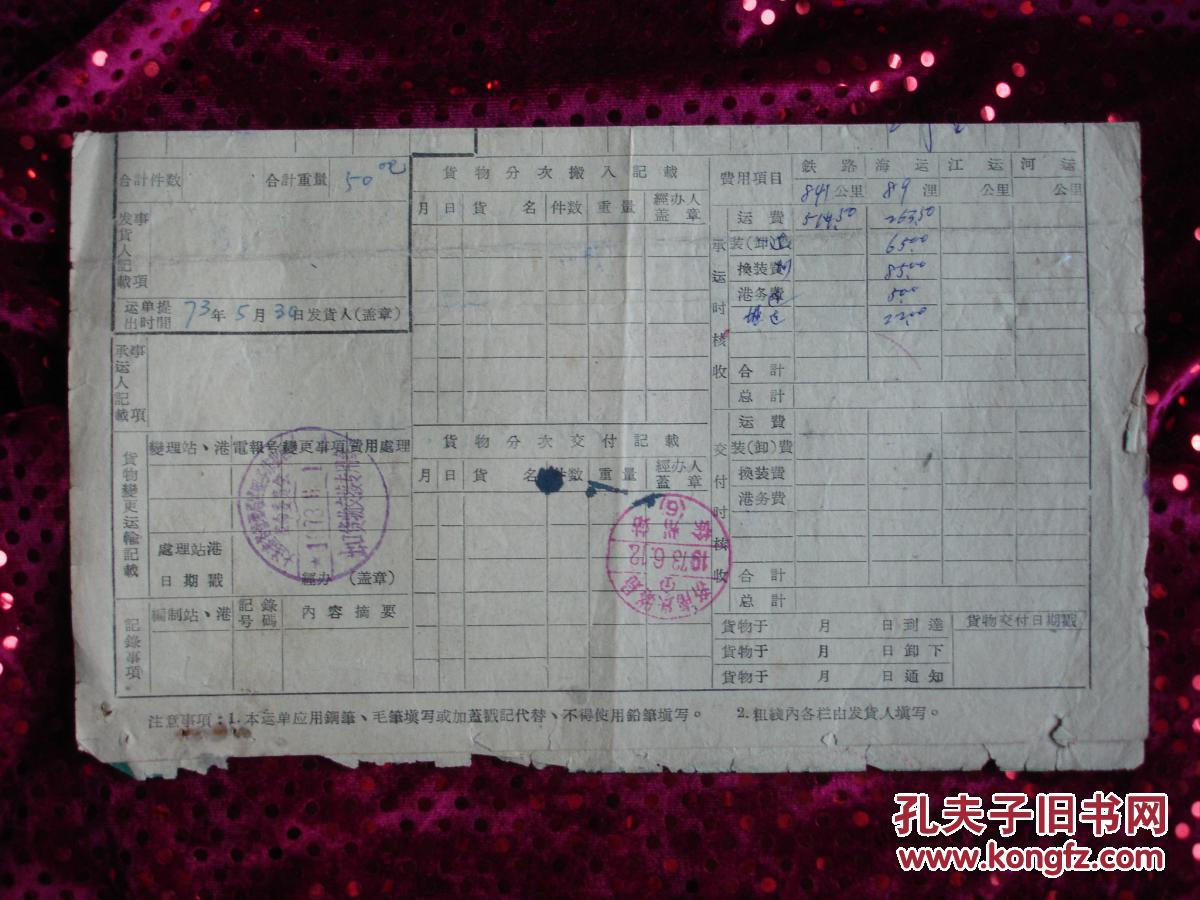 合計件数 合計重量 50.00
发貨人記載事項
运单提出时間 73年5月30日发貨人(盖章)
承运人記載事項
貨物變更运輸記載
變理站、港 電報号 變更事項 費用處理
處理站港
日期戳 經办 (盖章)
記錄事項
編制站、港 記錄号碼 内容摘要
貨物分次搬入記載
月 日 貨名 件数 重量 經办人盖章
貨物分次交付記載
月 日 貨名 件数 重量 經办人盖章
1973.6.12
費用項目 鉄路 海运 江运 河运
841公里 89浬 公里 公里
承运时核收
运費 514.50 263.50
装(卸)費 65.00
換装費 85.00
港务費
22.00
合計
总計
交付时核收
运費
装(卸)費
換装費
港务費
合計
总計
貨物于 月 日到達 貨物交付日期戳
貨物于 月 日卸下
貨物于 月 日通知
注意事項：1.本运单应用鋼筆、毛筆填写或加蓋戳記代替、不得使用鉛筆填写。 2.粗綫内各栏由发貨人填写。
孔夫子旧书网
www.kongfz.com